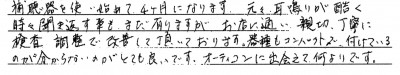 補聴器を使い始めて4ヶ月になります。元々耳鳴りが酷く
時々聞き返す事もまだ有りますが、お店に通い、親切、丁寧に
検査、調整で改善して頂いております。器種もコンパクトで、付けている
のが分からないのがとても良いです。オーティコンに出会えて何よりです。